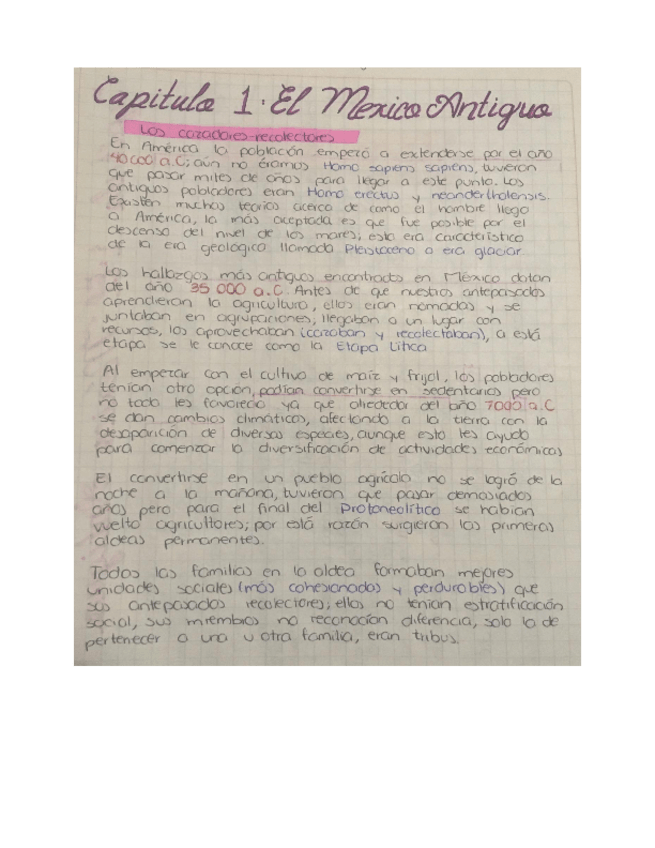 Capitulo 1. El Mexico Antiguo
Los cazadores-recolectores
En América la población empezó a extenderse por el año
40000 a.C; aún no éramos Homo sapiens sapiens, tuvieron
que pasar miles de años para llegar a este punto. Los
antiguos pobladores eran Homo erectus y neanderthalensis.
Existen muchas teorias acerca de como el hombre llego
a América, la más aceptada es que fue posible por el
descenso del nivel de los mares; esto era caracteristico
de la era geologica llamada Pleistoceno o era glaciar
Los hallazgos más antiguos encontrados en México datan
del año 35 000 a.C. Antes de que nuestros antepasados
aprendieran la agricultura, ellos eran nómadas y se
juntaban en agrupaciones; llegaban a un lugar con
recursos, los aprovechaban (cazaban y recolectaban), a está
etapa se le conoce como la Etapa Litica
Al empezar con el cultivo de maíz y frijol, los pobladores
tenian otro opción, podian convertirse en sedentarios pero
no todo les favorecio ya que alrededor del año 7000 a.C
se dan cambios climáticos, afectando a la tierra con la
desaparición de diversas especies, aunque esto les ayudo
para comenzar la diversificación de actividades económicas
El convertirse en un pueblo agrícola no se logró de la
noche a la mañana, tuvieron que pasar demasiados
años pero para el final del Protoneolítico se habian
vuelto agricultores; por está razón surgieron las primeras
aldeas permanentes.
Todas las familias en la aldea formaban mejores
unidades sociales (más cohesionadas y perdurables) que
sus antepasados recolectores; ellos no tenian estratificación
social, sus miembros no reconocían diferencia, solo la de
pertenecer a una u otra familia, eran tribus.